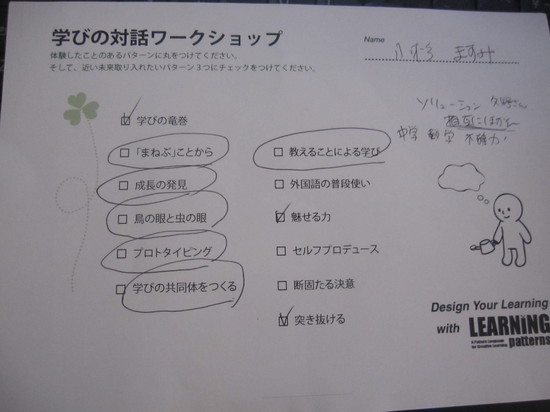 学びの対話ワークショップ
体験したことのあるパターンに丸をつけてください。
そして、近い未来取り入れたいパターン3つにチェックをつけてください。
Name
学びの竜巻
「まねぶ」ことから
成長の発見
鳥の眼と虫の眼
プロトタイピング
学びの共同体をつくる
教えることによる学び
外国語の普段使い
魅せる力
セルフプロデュース
断固たる決意
突き抜ける
ソリューション
中学 数学
Design Your Learning
with LEARNiNG
patterns